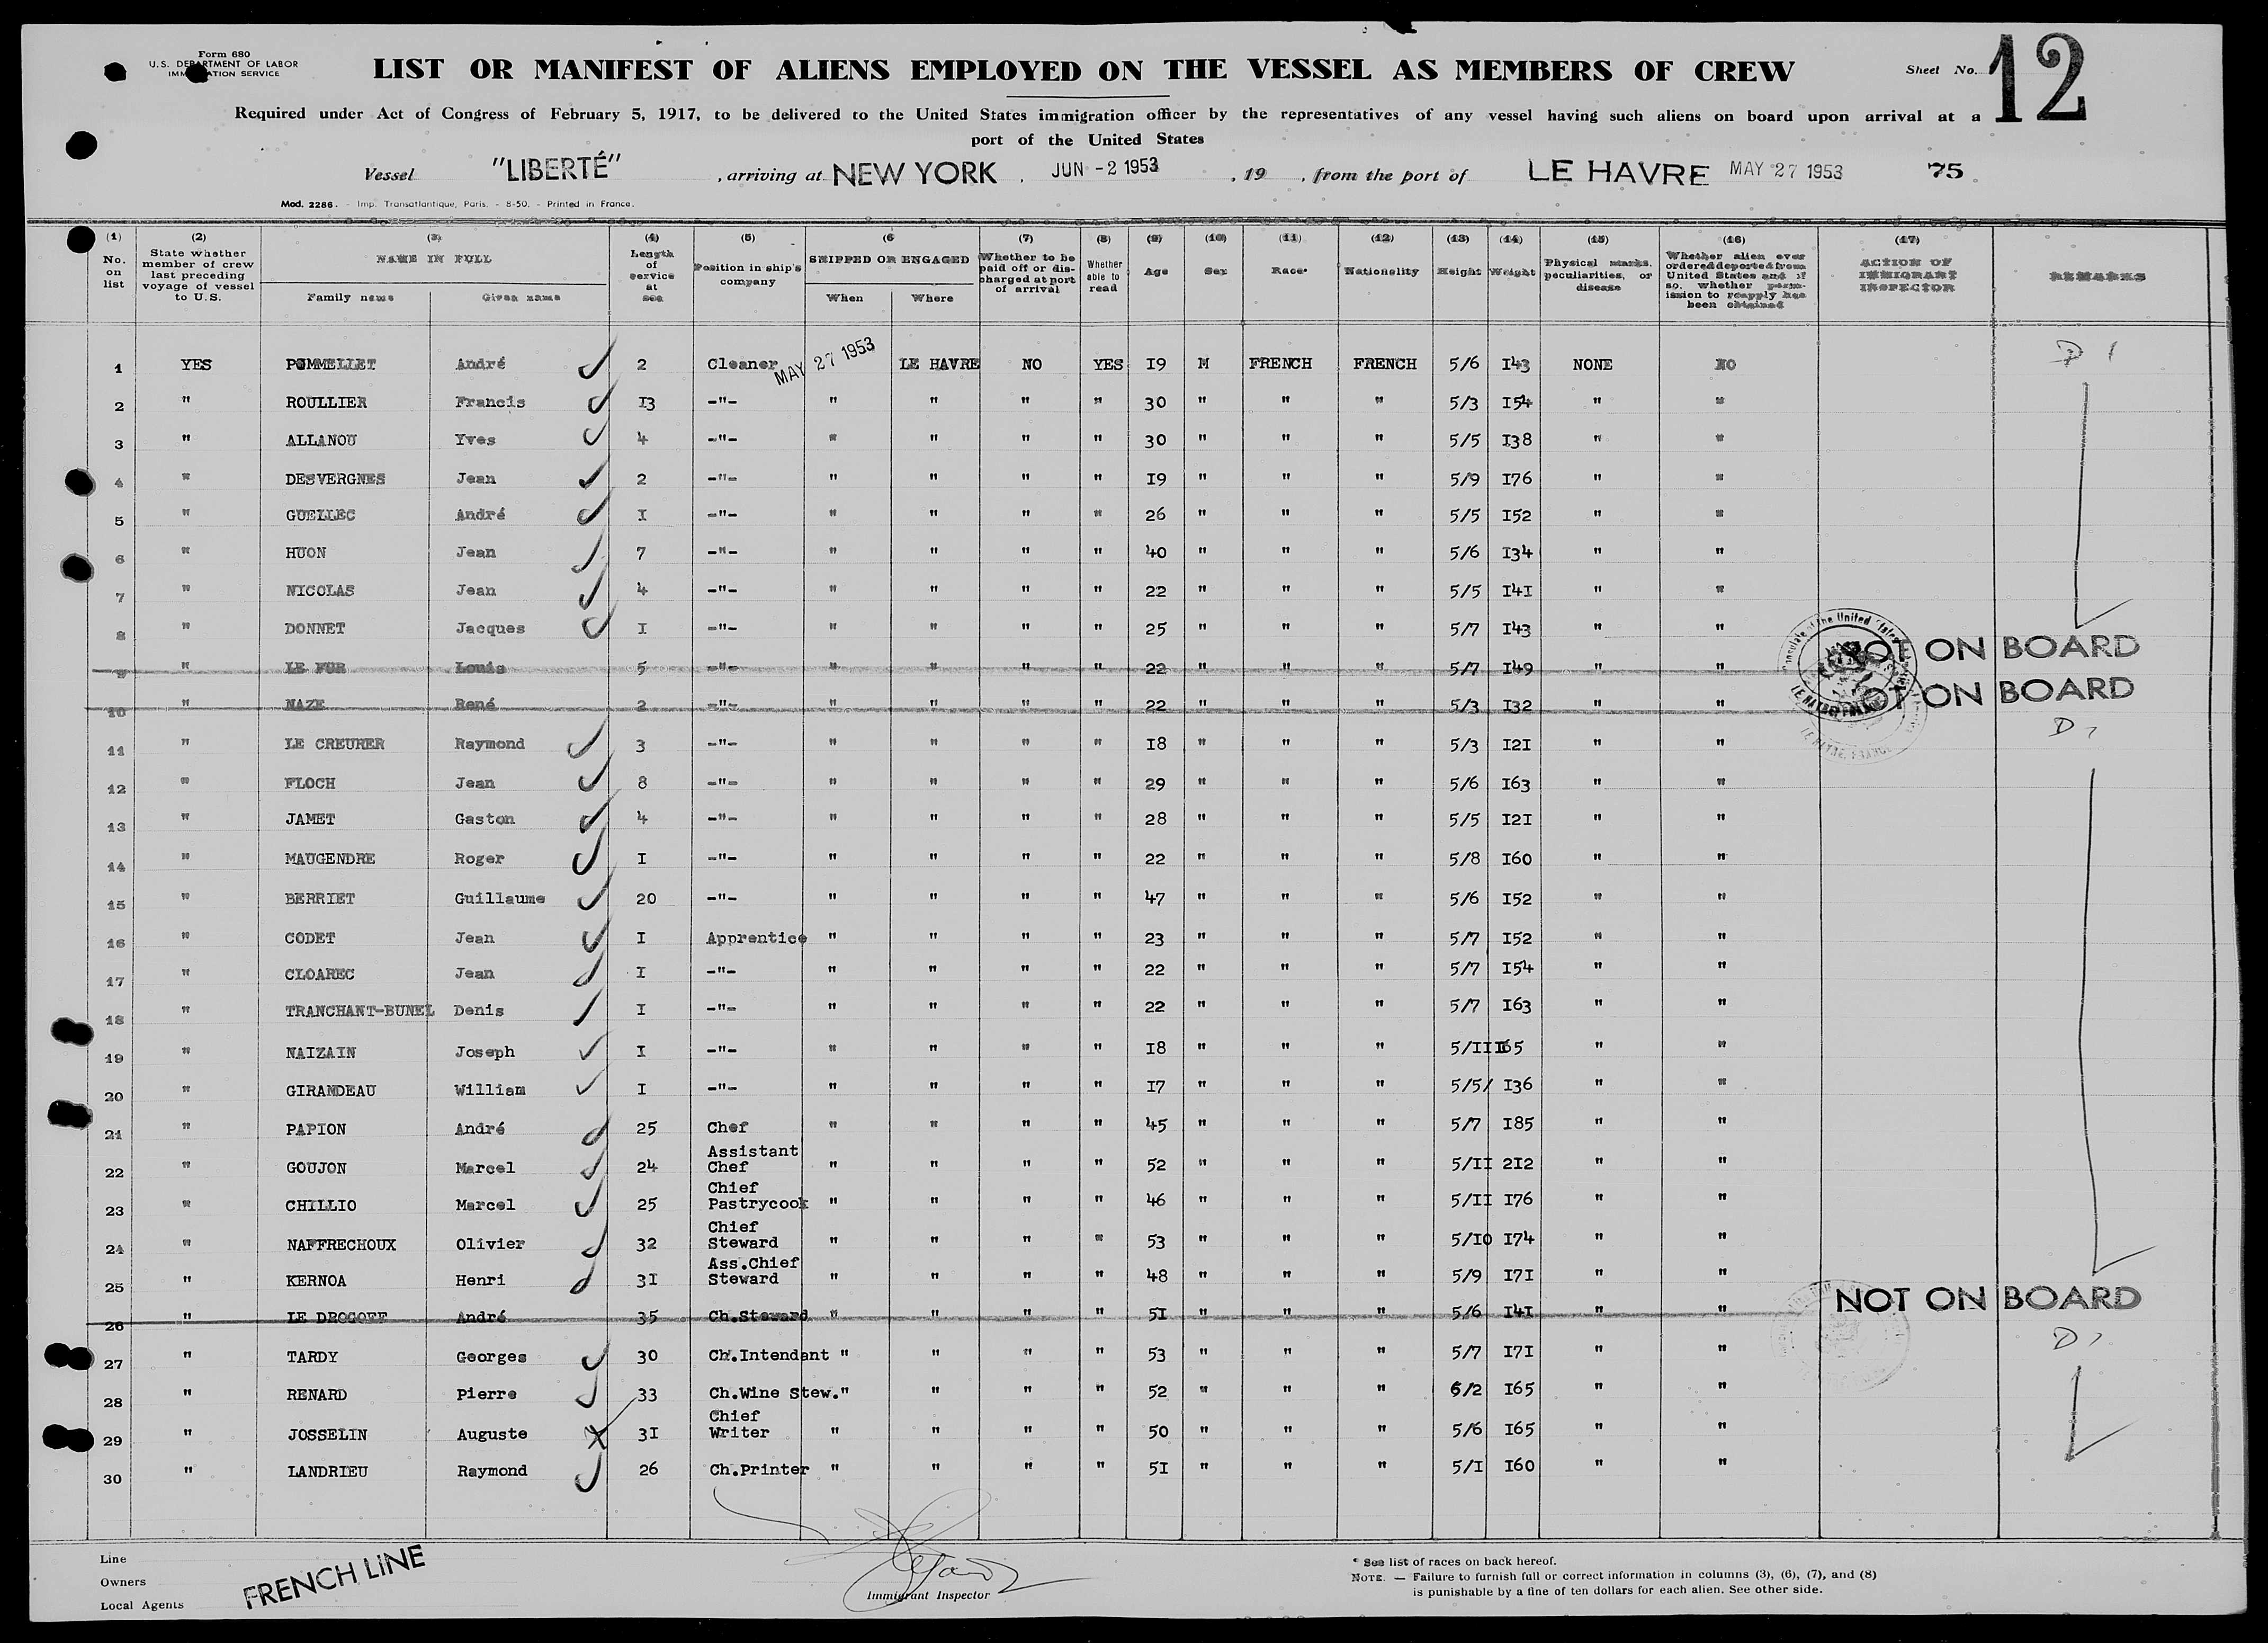 Form 680
U.S. DEPARTMENT OF LABOR
IMMIGRATION SERVICE
LIST OR MANIFEST OF ALIENS EMPLOYED ON THE VESSEL AS MEMBERS OF CREW
Sheet No. 12
Required under Act of Congress of February 5, 1917, to be delivered to the United States immigration officer by the representatives of any vessel having such aliens on board upon arrival at a
port of the United States
Vessel "LIBERTÉ", arriving at NEW YORK, JUN -2 1953, 19 , from the port of LE HAVRE MAY 27 1953 75
Mod. 2286. - Imp. Transatlantique, Paris. - 8-50. - Printed in France.
(1) No. on list
(2) State whether member of crew last preceding voyage of vessel to U.S.
(3) NAME IN FULL Family name Given name
(4) Length of service at sea
(5) Position in ship's company
(6 SHIPPED OR ENGAGED When Where
(7) Whether to be paid off or discharged at port of arrival
(8) Whether able to read
(9) Age
(10) Sex
(11) Race*
(12) Nationality
(13) Height
(14) Weight
(15) Physical marks, peculiarities, or disease
(16) Whether alien ever ordered deported from United States and if so, whether permission to reapply has been obtained
(17) ACTION OF IMMIGRANT INSPECTOR
REMARKS
1 YES POMMELLET André 2 Cleaner MAY 27 1953 LE HAVRE NO YES 19 M FRENCH FRENCH 5/6 143 NONE NO D 1
2 " ROULLIER Francis 13 -"- " " " " 30 " " " 5/3 154 " "
3 " ALLANOU Yves 4 -"- " " " " 30 " " " 5/5 138 " "
4 " DESVERGNES Jean 2 -"- " " " " 19 " " " 5/9 176 " "
5 " GUELLEC André I -"- " " " " 26 " " " 5/5 152 " "
6 " HUON Jean 7 -"- " " " " 40 " " " 5/6 134 " "
7 " NICOLAS Jean 4 -"- " " " " 22 " " " 5/5 141 " "
8 " DONNET Jacques I -"- " " " " 25 " " " 5/7 143 " "
9 " LE FUR Louis 5 -"- " " " " 22 " " " 5/7 149 " " NOT ON BOARD
10 " NAZE René 2 -"- " " " " 22 " " " 5/3 132 " " NOT ON BOARD
11 " LE CREURER Raymond 3 -"- " " " " 18 " " " 5/3 121 " " D 1
12 " FLOCH Jean 8 -"- " " " " 29 " " " 5/6 163 " "
13 " JAMET Gaston 4 -"- " " " " 28 " " " 5/5 121 " "
14 " MAUGENDRE Roger I -"- " " " " 22 " " " 5/8 160 " "
15 " BERRIET Guillaume 20 -"- " " " " 47 " " " 5/6 152 " "
16 " CODET Jean I Apprentice " " " " 23 " " " 5/7 152 " "
17 " CLOAREC Jean I -"- " " " " 22 " " " 5/7 154 " "
18 " TRANCHANT-BUNEL Denis I -"- " " " " 22 " " " 5/7 163 " "
19 " NAIZAIN Joseph I -"- " " " " 18 " " " 5/II 165 " "
20 " GIRANDEAU William I -"- " " " " 17 " " " 5/5/ 136 " "
21 " PAPION André 25 Chef " " " " 45 " " " 5/7 185 " "
22 " GOUJON Marcel 24 Assistant Chef " " " " 52 " " " 5/II 212 " "
23 " CHILLIO Marcel 25 Chief Pastrycook " " " " 46 " " " 5/II 176 " "
24 " NAFFRECHOUX Olivier 32 Chief Steward " " " " 53 " " " 5/10 174 " "
25 " KERNOA Henri 31 Ass.Chief Steward " " " " 48 " " " 5/9 171 " "
26 " LE DROGOFF André 35 Ch.Steward " " " " 51 " " " 5/6 141 " " NOT ON BOARD
27 " TARDY Georges 30 Ch.Intendant " " " " 53 " " " 5/7 171 " " D 1
28 " RENARD Pierre 33 Ch.Wine Stew." " " " 52 " " " 6/2 165 " "
29 " JOSSELIN Auguste 31 Chief Writer " " " " 50 " " " 5/6 165 " "
30 " LANDRIEU Raymond 26 Ch.Printer " " " " 51 " " " 5/I 160 " "
Line
Owners
Local Agents
FRENCH LINE
Immigrant Inspector
* See list of races on back hereof.
NOTE. — Failure to furnish full or correct information in columns (3), (6), (7), and (8)
is punishable by a fine of ten dollars for each alien. See other side.